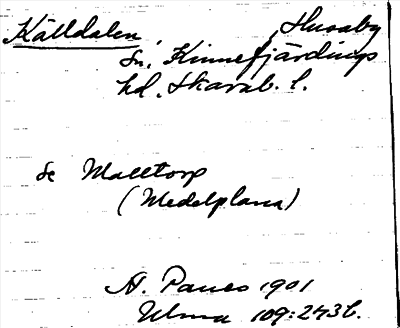 Källdalen, Husaby
Sn, Kinnefjärdings
hd, Skarab. l.
Se Malltorp
(Medelplana)
1901
109:243b.